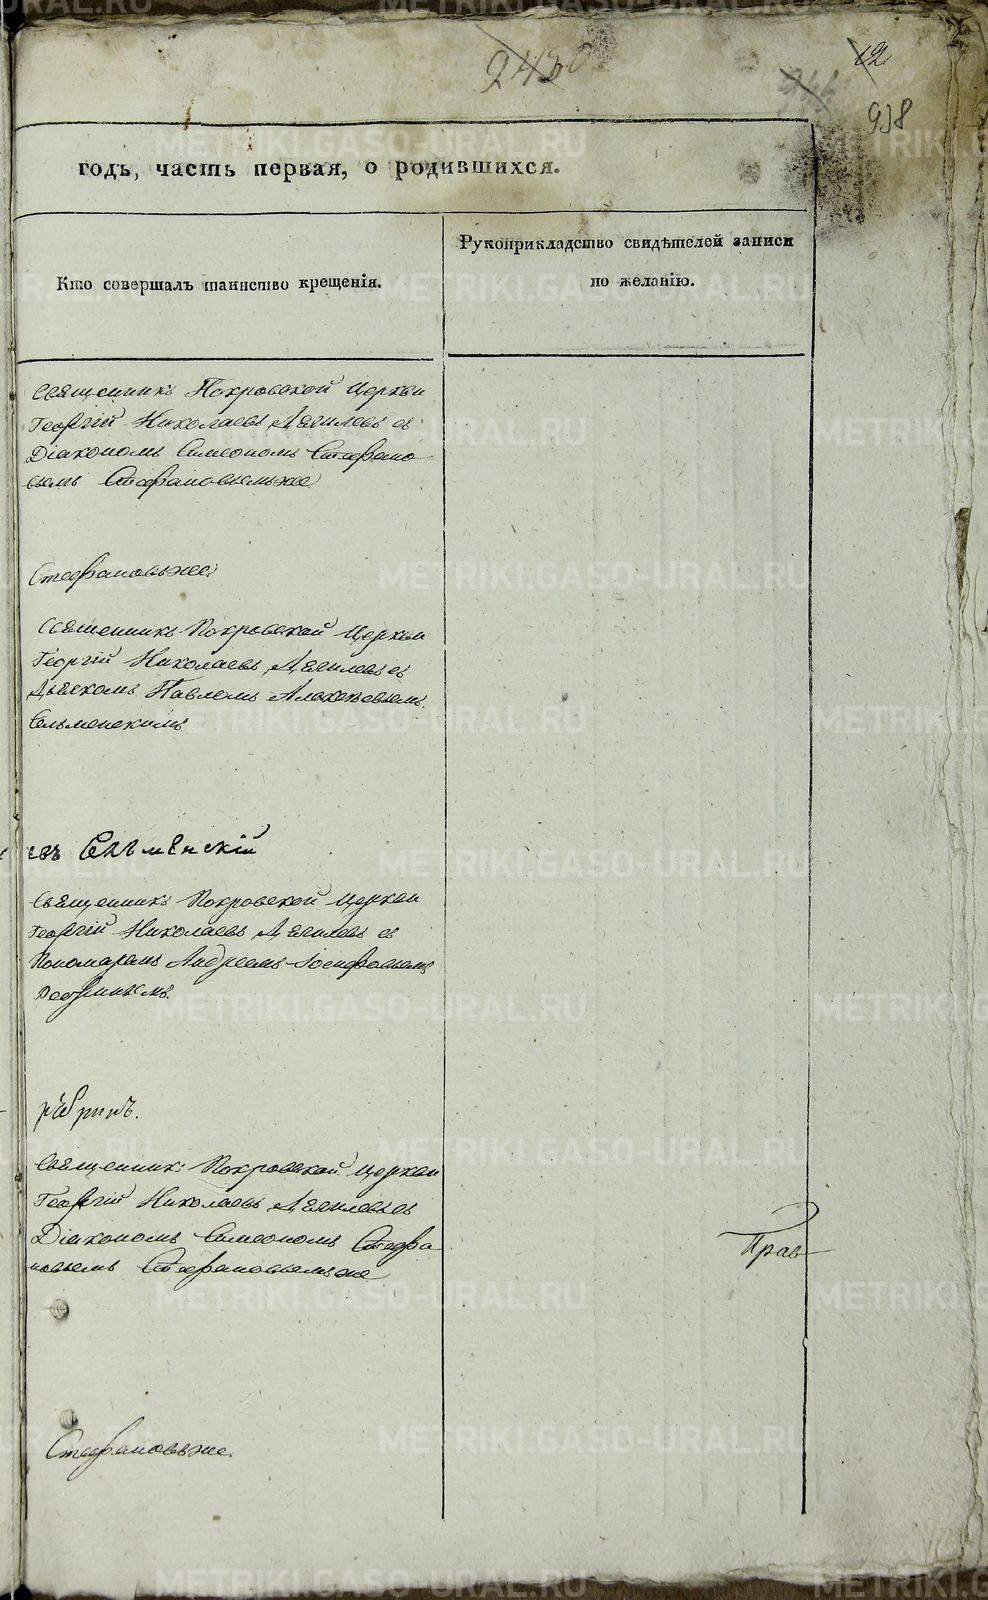 2430
12
938
годъ, часть первая, о родившихся.
Кто совершалъ таинство крещенія.
Рукоприкладство свидѣтелей записи
по желанію.
Священникъ Покровской Церкви
Георгій Николаевъ Дягилевъ съ
Діакономъ Симеономъ Стефано
вымъ Стефановымъ же
Стефановъ же.
Священникъ Покровской Церкви
Георгій Николаевъ Дягилевъ съ
Дьячкомъ Павломъ
Сельменскимъ
евъ Сельменскій
Священникъ Покровской Церкви
Георгій Николаевъ Дягилевъ съ
Пономаремъ Андреемъ Іосифовымъ
Священникъ Покровской Церкви
Георгій Николаевъ Дягилевъ съ
Діакономъ Симеономъ Стефа
новымъ Стефановымъ же
Прав
Стефановъ же.
METRIKI.GASO-URAL.RU